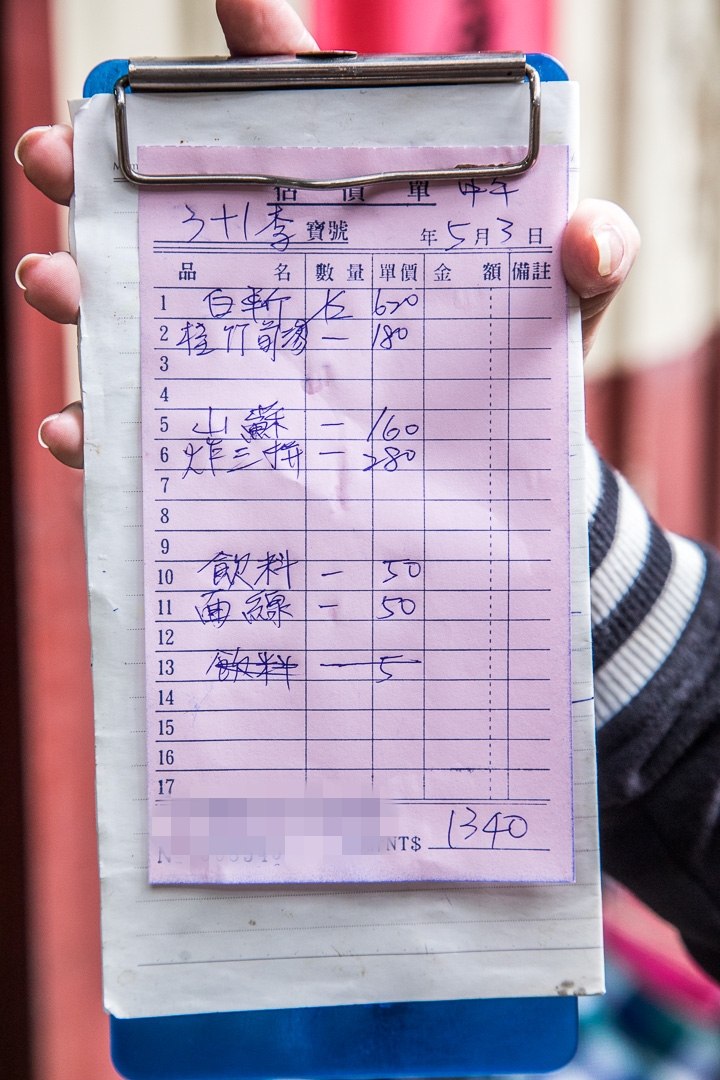 估價單 中午
3+1李 寶號 年5月3日
品名 數量 單價 金額 備註
1 白斬 ㄍ 620
2 桂竹筍湯 一 180
3
4
5 山蘇 一 160
6 炸三拼 一 280
7
8
9
10 飲料 一 50
11 面線 一 50
12
13 飲料 一 5
14
15
16
17
NT$ 1340